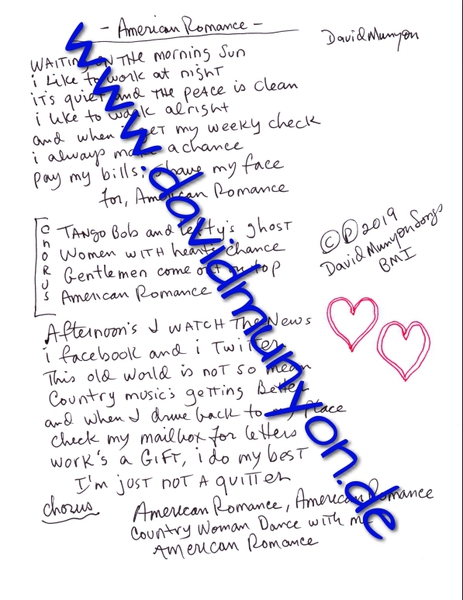 - American Romance -
David Munyon
WAITING ON THE morning Sun
i Like to work at night
it's quiet and THE peace is clean
i like to walk alright
and when i get my weekly check
i always make a chance
pay my bills, shave my face
for, American Romance
CHORUS
TANGO Bob and Lefty's ghost
Women WITH hearts chance
Gentlemen come out on top
American Romance
© ℗ 2019
David Munyon Songs
BMI
Afternoon's I WATCH The News
i facebook and i Twitter
This old world is not so mean
Country music's getting Better
and when I drive back to my place
check my mailbox for letters
work's a GIFT, i do my best
I'm just not a quitter
chorus
American Romance, American Romance
Country Woman Dance with me
American Romance
www.davidmunyon.de